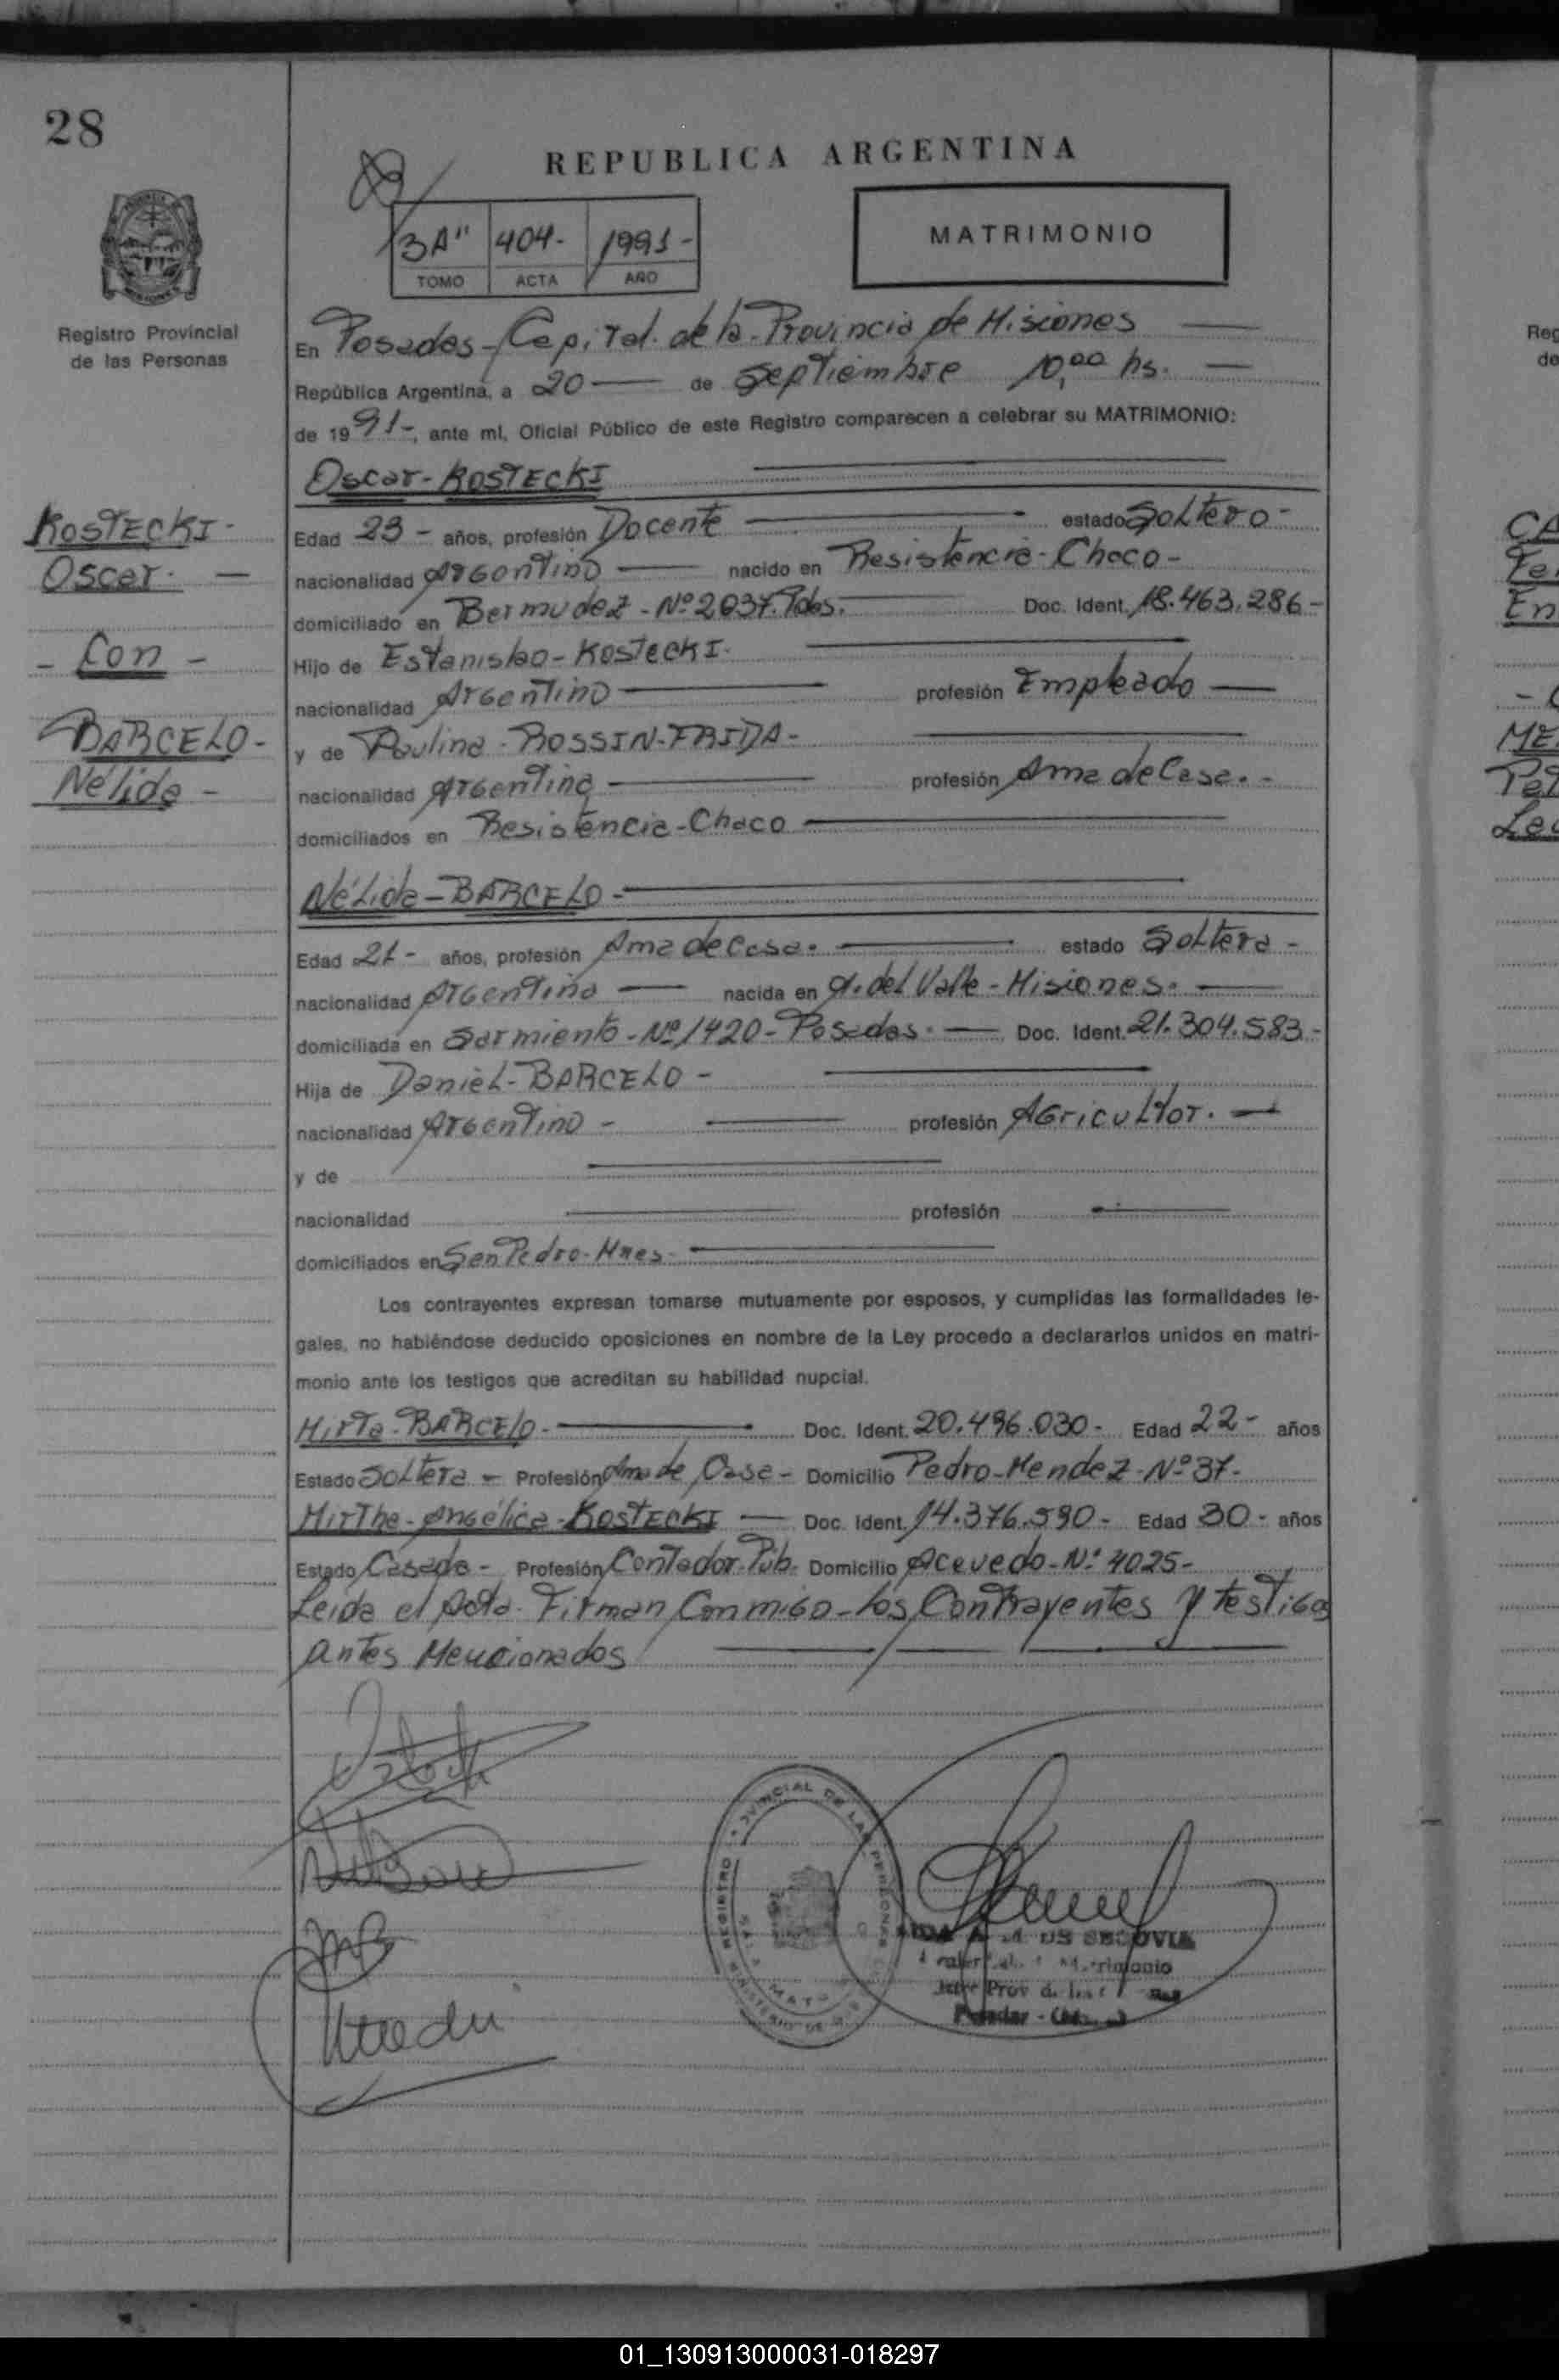 28
REPUBLICA ARGENTINA
3A" 404- 1991-
TOMO ACTA AÑO
MATRIMONIO
Registro Provincial
de las Personas
En Posadas - Capital de la Provincia de Misiones
República Argentina, a 20 de Septiembre 10,00 hs.
de 1991-, ante mi, Oficial Público de este Registro comparecen a celebrar su MATRIMONIO:
Oscar - KOSTECKI
KOSTECKI -
Oscar. -
- Con -
BARCELO -
Nélida -
Edad 23 - años, profesión Docente estado Soltero -
nacionalidad Argentino nacido en Resistencia - Chaco -
domiciliado en Bermudez - Nº 2037. Pdas. Doc. Ident. 18.463.286 -
Hijo de Estanislao - KOSTECKI.
nacionalidad Argentino profesión Empleado
y de Paulina - ROSSIN - FRIDA -
nacionalidad Argentina profesión Ama de Casa. -
domiciliados en Resistencia - Chaco
Nélida - BARCELO -
Edad 21 - años, profesión Ama de Casa. estado Soltera -
nacionalidad Argentina nacida en A. del Valle - Misiones.
domiciliada en Sarmiento - Nº 1420 - Posadas. Doc. Ident. 21.304.583 -
Hija de Daniel - BARCELO -
nacionalidad Argentino - profesión Agricultor.
y de
nacionalidad profesión
domiciliados en San Pedro - Mnes.
Los contrayentes expresan tomarse mutuamente por esposos, y cumplidas las formalidades le-
gales, no habiéndose deducido oposiciones en nombre de la Ley procedo a declararlos unidos en matri-
monio ante los testigos que acreditan su habilidad nupcial.
Mirta - BARCELO - Doc. Ident. 20.496.030 - Edad 22 - años
Estado Soltera - Profesión Ama de Casa - Domicilio Pedro - Mendez - Nº 37 -
Mirtha - Angélica - KOSTECKI Doc. Ident. 14.376.590 - Edad 30 - años
Estado Casada - Profesión Contador Púb. Domicilio Acevedo - Nº 4025 -
Leida el Acta. Firman Conmigo - los Contrayentes y testigos
antes Mencionados
REGISTRO PROVINCIAL DE LAS PERSONAS
DE SEGOVIA
01_130913000031-018297